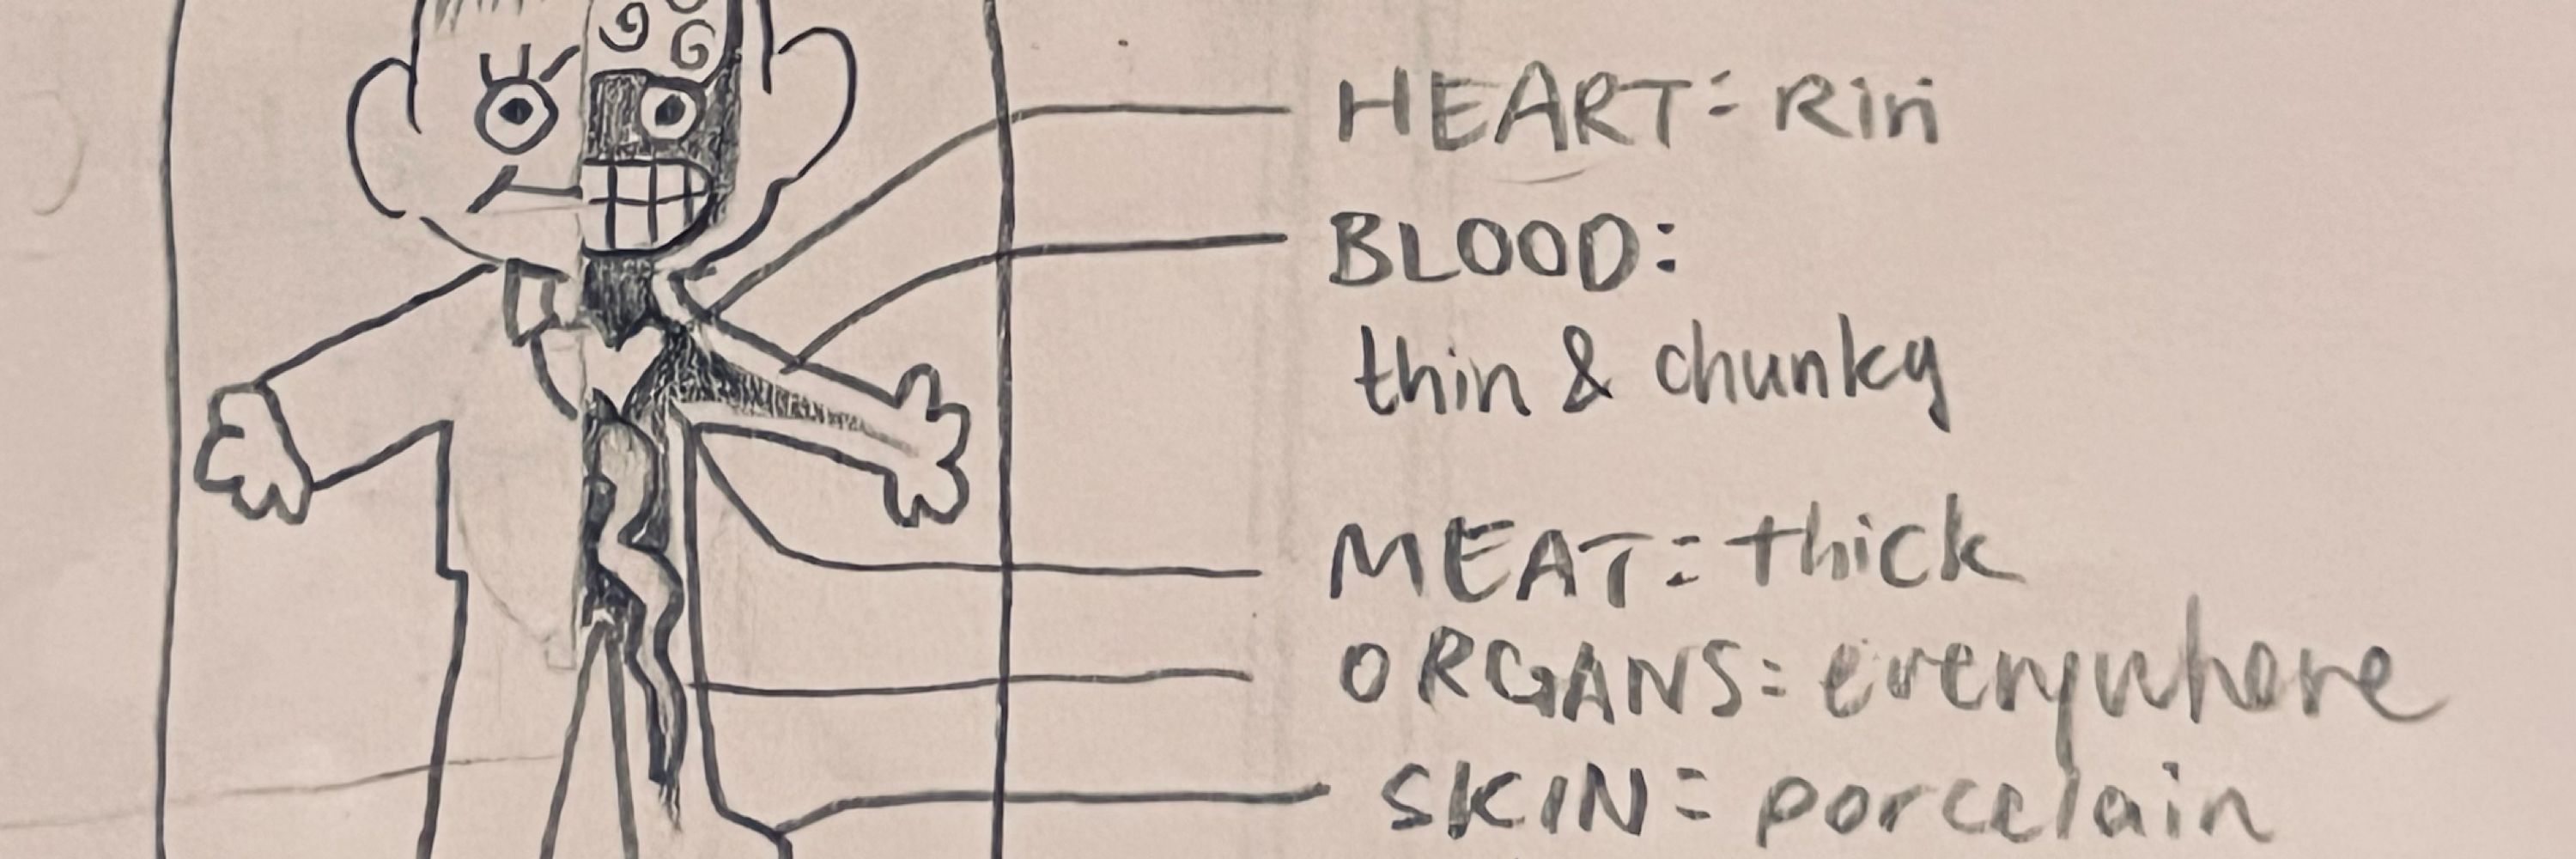 HEART: Riri
BLOOD:
thin & chunky
MEAT: thick
ORGANS: everywhere
SKIN: porcelain